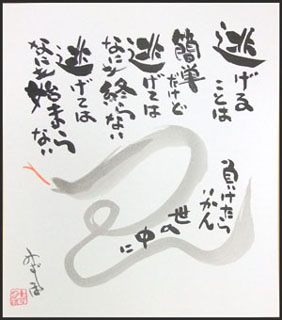 逃げる
ことは
簡単
だけど
逃げては
なにも終らない
逃げては
なにも始まらない
負けたら
いかん
世の
中に